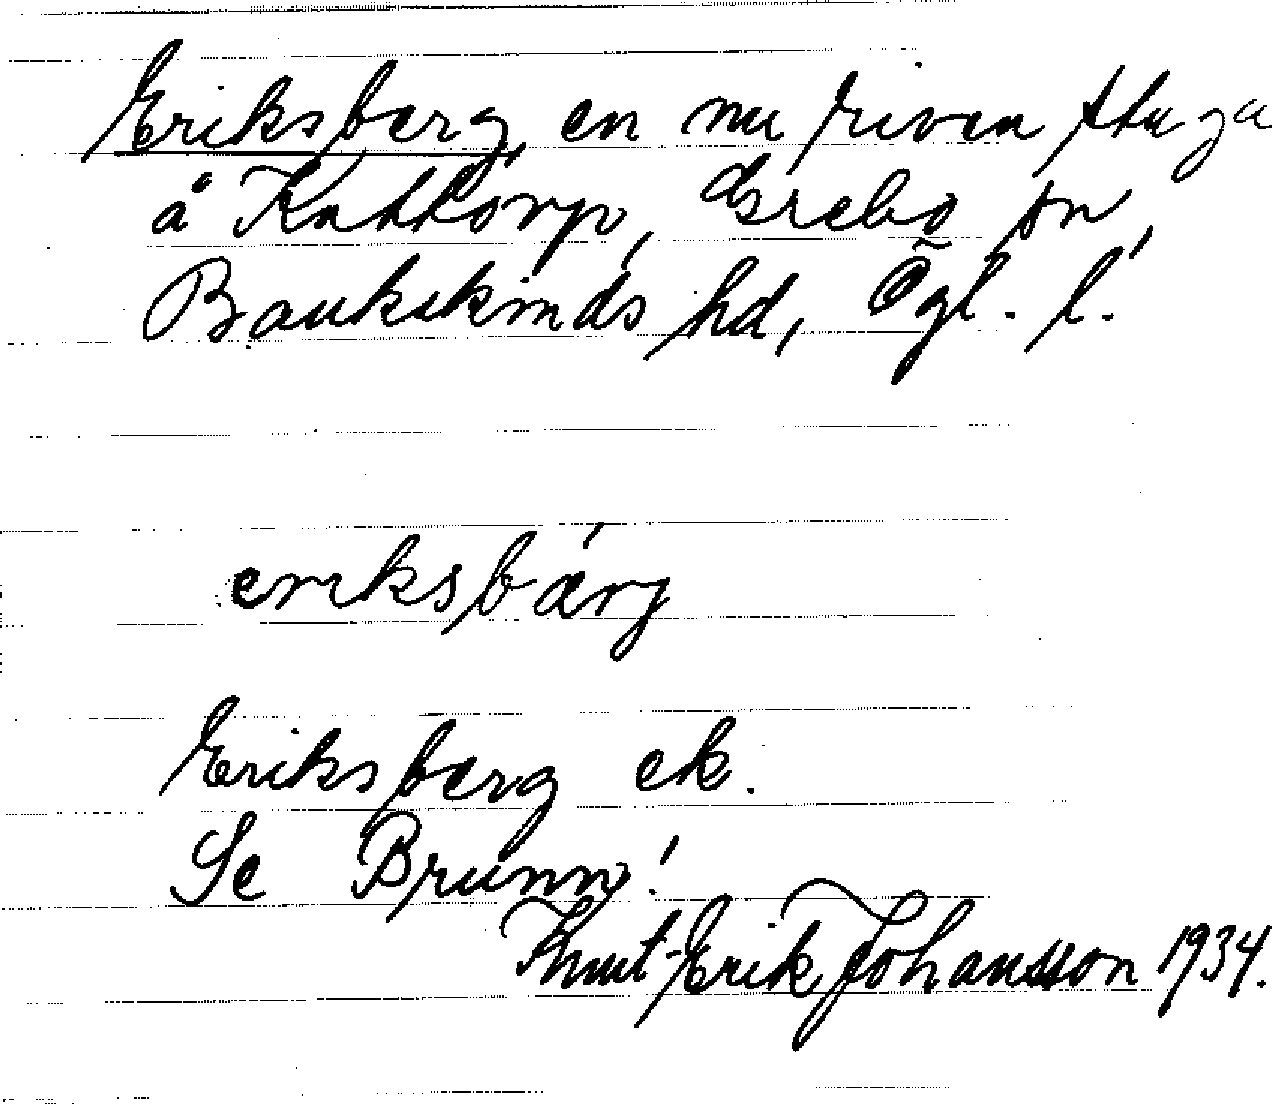 Eriksberg, en nu riven stuga
å Kattorp, Grebo sn,
Bankekinds hd, Ögl. l.
eriksbärj
Eriksberg ek.
Se Brunn!
Knut-Erik Johansson 1934.